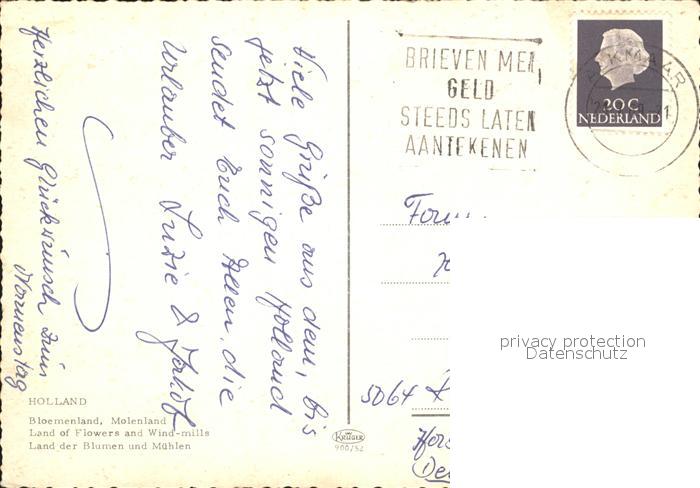 BRIEVEN MET
GELD
STEEDS LATEN
AANTEKENEN
ALKMAAR
20 C
NEDERLAND
Viele Grüße aus dem, bis
jetzt sonnigen Holland
sendet Euch Allen, die
Urlauber Luzie &
Herzlichen Glückwunsch zum
Namenstag
Fam...
5064
HOLLAND
Bloemenland, Molenland
Land of Flowers and Wind-mills
Land der Blumen und Mühlen
KRÜGER
900/52
privacy protection
Datenschutz